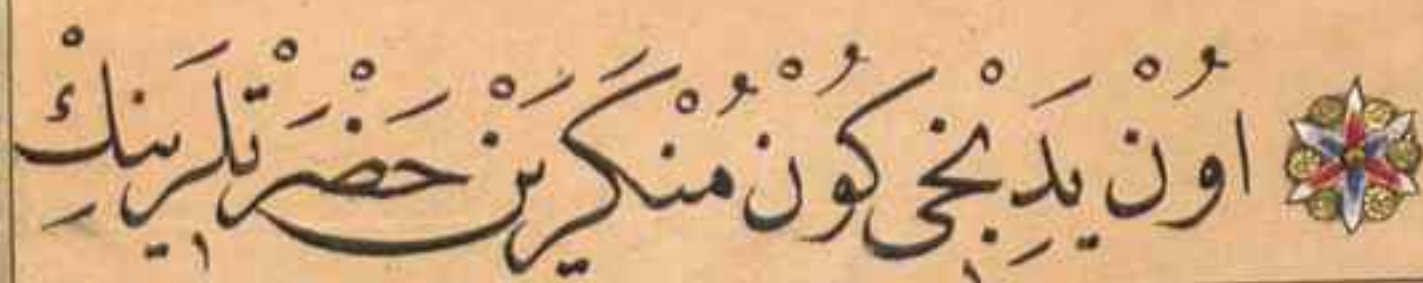 اوُنْ يَدِنْجِى كُونْ مُنْكَرَيْنْ حَضْرَتْلَرِينِكْ